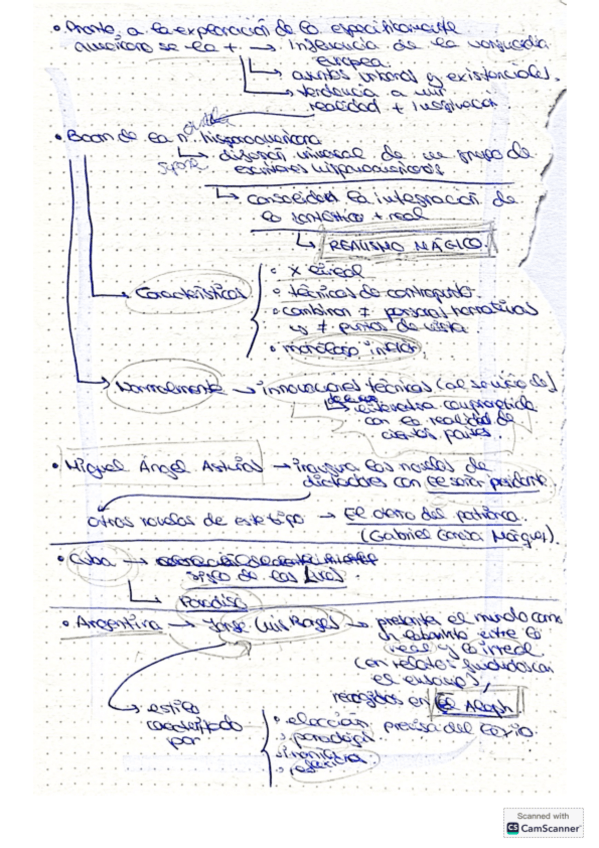 • Pronto, a la exploración de lo específicamente
americano se le + → Influencia de la vanguardia
europea.
↳ asuntos urbanos y existenciales.
↳ tendencia a unir
realidad + imaginación.
• Boom de la n. hispanoamericana
↳ difusión universal de un grupo de
escritores hispanoamericanos
↳ consolidan la integración de
lo fantástico + real
↳ REALISMO MÁGICO.
Características
• X lineal
• técnicas de contrapunto
• combinan ≠ personas narrativas
y ≠ puntos de vista.
• monólogo interior
Normalmente → innovaciones técnicas (al servicio de)
↳ literatura comprometida
con la realidad de
ciertos países.
• Miguel Ángel Asturias → inaugura las novelas de
dictadores con El señor presidente.
otras novelas de este tipo → El otoño del patriarca.
(Gabriel García Márquez).
• Cuba →
↳ Paradiso
• Argentina → Jorge Luis Borges → presenta el mundo como
un laberinto entre lo
real y lo irreal
con relatos fundidos con
el ensayo,
recogidos en El Aleph
→ estilo
caracterizado
por
• elección precisa del léxico.
• paradojas